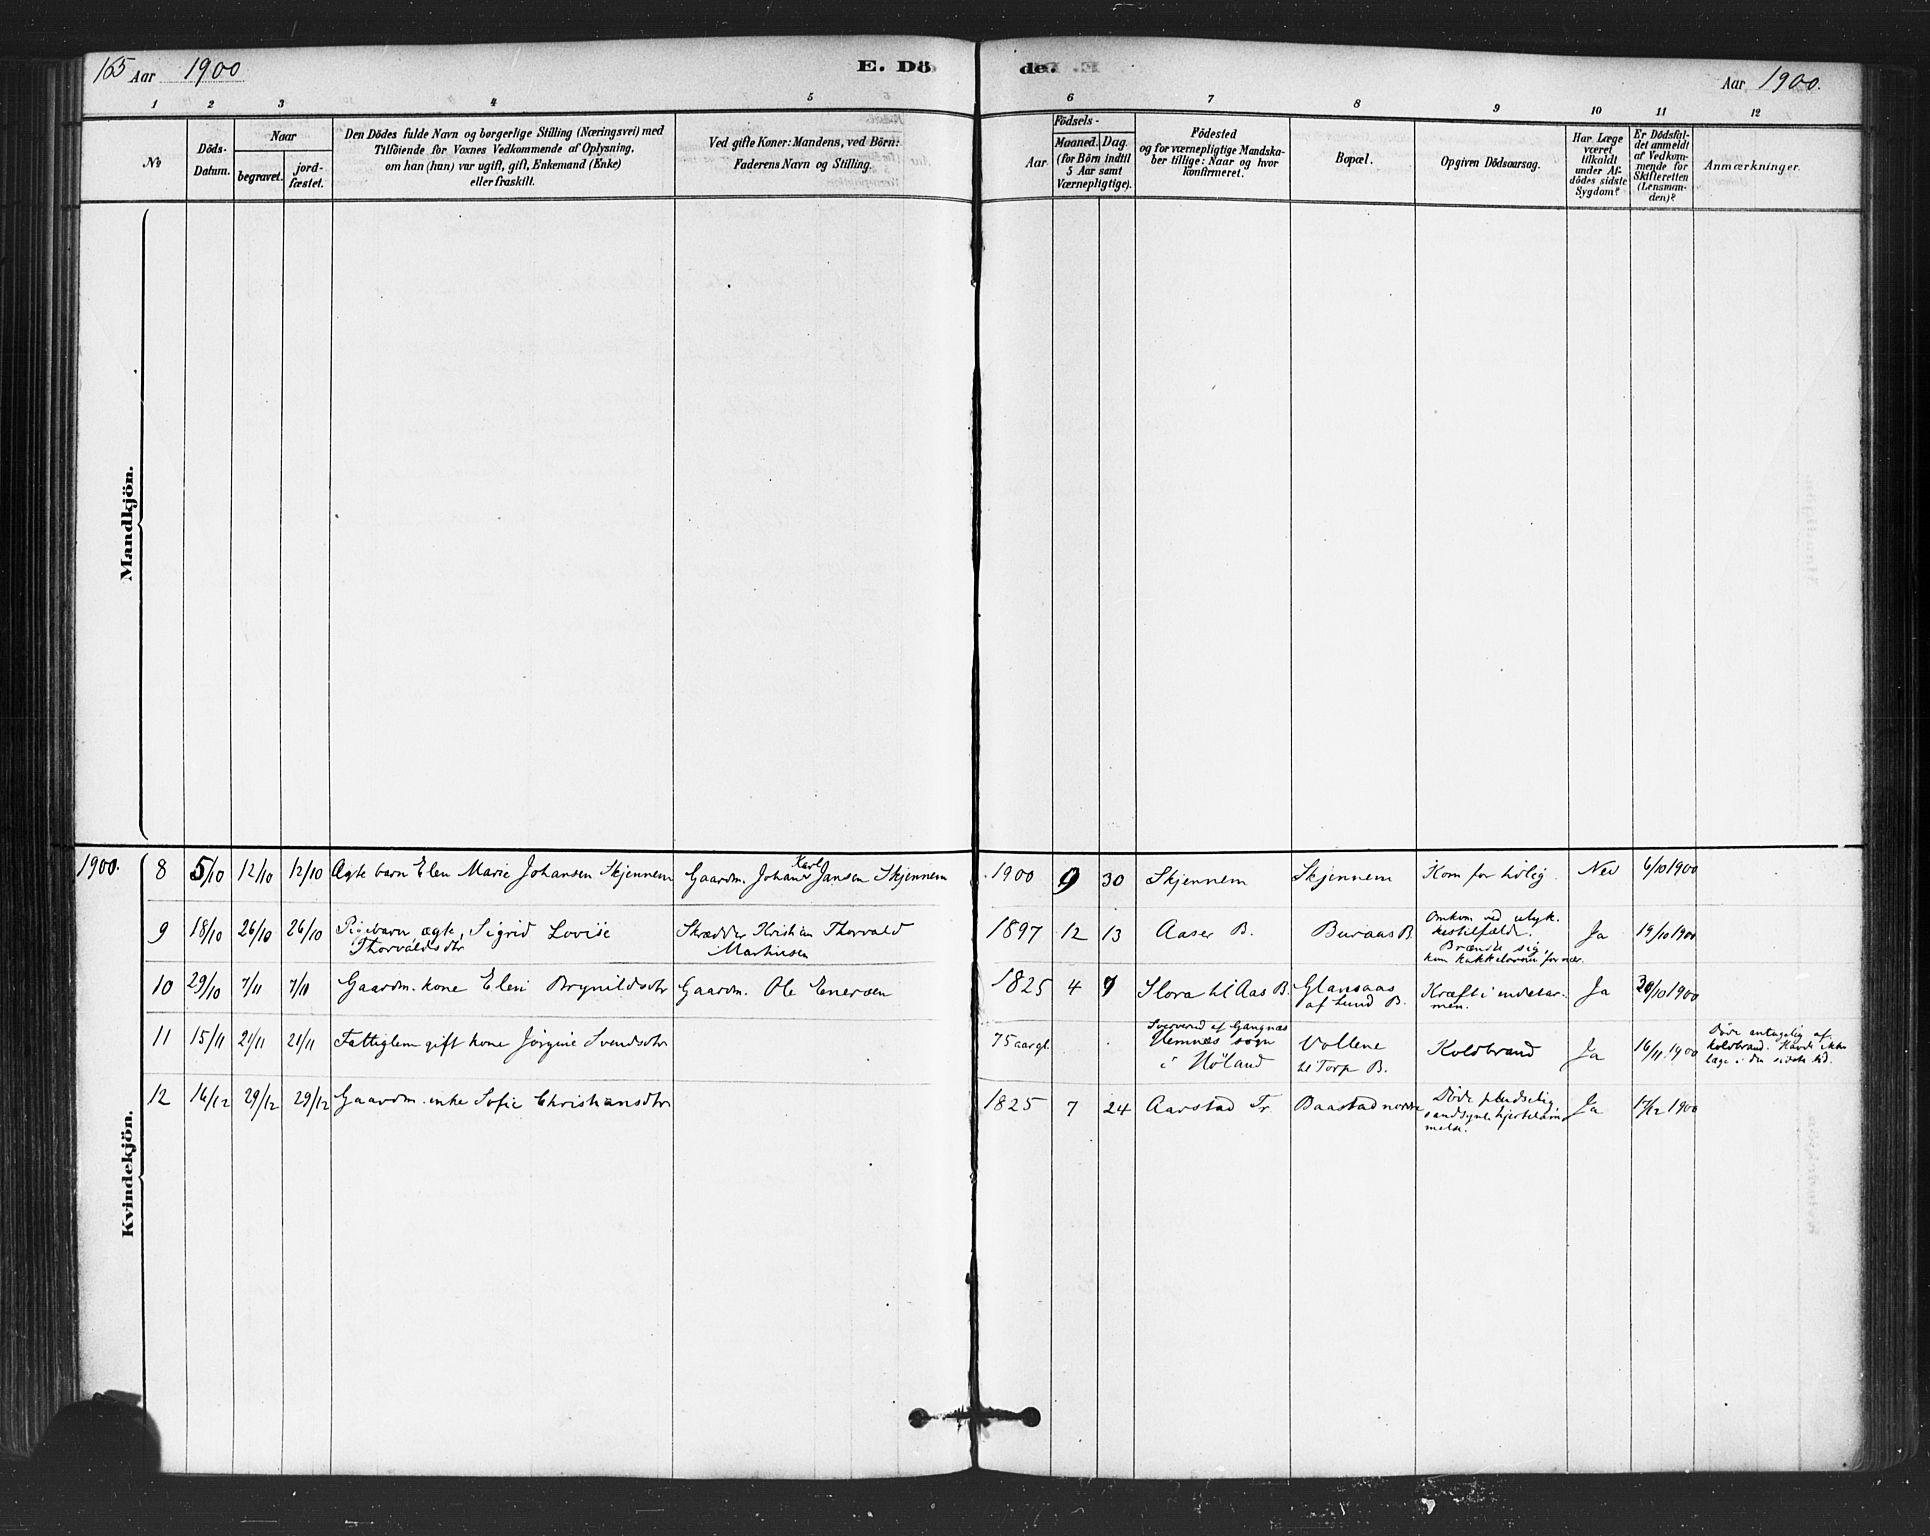 165 Aar 1900 E. Dö de. Aar 1900.
1 2 3 4 5 6 7 8 9 10 11 12
No
Döds-
Datum.
Naar
begravet.
jord-
fæstet.
Den Dödes fulde Navn og borgerlige Stilling (Næringsvei) med
Tilföiende for Voxnes Vedkommende af Oplysning,
om han (hun) var ugift, gift, Enkemand (Enke)
eller fraskilt.
Ved gifte Koner: Mandens, ved Börn:
Faderens Navn og Stilling.
Födsels-
Aar.
Maaned.
Dag.
(for Börn indtil
5 Aar samt
Værnepligtige).
Födested
og for værnepligtige Mandska-
ber tillige: Naar og hvor
konfirmeret.
Bopæl.
Opgiven Dödsaarsag.
Har Læge
været
tilkaldt
under Af-
dödes sidste
Sygdom?
Er Dödsfal-
det anmeldt
af Vedkom-
mende for
Skifteretten
(Lensman-
den)?
Anmærkninger.
Mandkjön.
Kvindekjön.
1900. 8 5/10 12/10 12/10 Ægte barn Elen Marie Johansen Skjennem
Karl
Gaardm. Johan Jansen Skjennem
1900 9 30 Skjennem Skjennem Kom for tidlig. Nei 6/10 1900
9 18/10 26/10 26/10 Pigebarn ægte, Sigrid Lovise
Thorvaldsdtr
Skrædder Kristian Thorvald
Martinsen
1897 12 13 Aaser B. Buraas B.
Omkom ved ulyk-
kestilfælde.
Brændte sig,
kom kakkelovnen for nær.
Ja 19/10 1900
10 29/10 7/11 7/11 Gaardm. kone Eleri Brynildsdtr Gaardm. Ole Enersen
1825 4 9 Slora til Aas B. Glansaas
af Lund B.
Kræft i endetar-
men.
Ja 30/10 1900
11 15/11 21/11 21/11 Fattiglem gift kone Jørgine Svendsdtr
75 aar gl.
af Gangnæs
Hemnæs sogn
i Høland
Vollene
til Torp B.
Koldbrand Ja 16/11 1900
Døde antagelig af
koldbrand. Havde ikke
læge i den sidste tid.
12 16/12 29/12 29/12 Gaardm. enke Sofie Christiansdtr
1825 7 24 Aarstad Tr. Baastad nordre
Døde pludselig
sandsynl. hjertelam-
melse.
Ja 17/12 1900